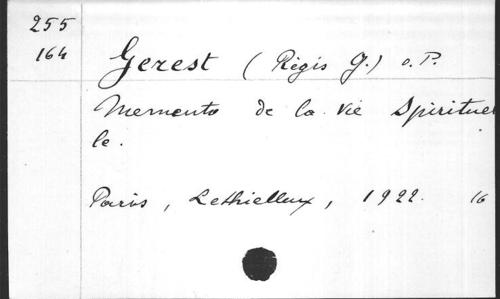 255
164
Gerest (Régis G.) o.P.
Memento de la vie Spirituel
le.
Paris, Lethielleux, 1922. 16